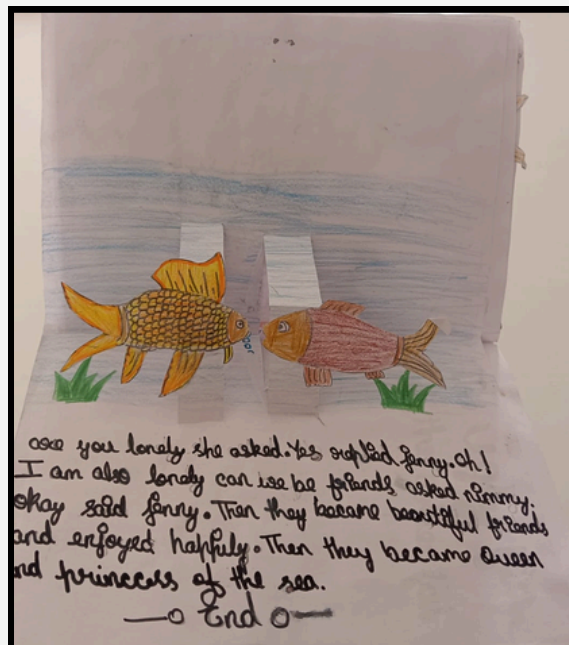 are you lonely she asked. Yes replied fenny. Oh!
I am also lonely can we be friends asked nimmy.
Okay said fenny. Then they became beautiful friends
and enjoyed happily. Then they became Queen
nd princess of the sea.
End